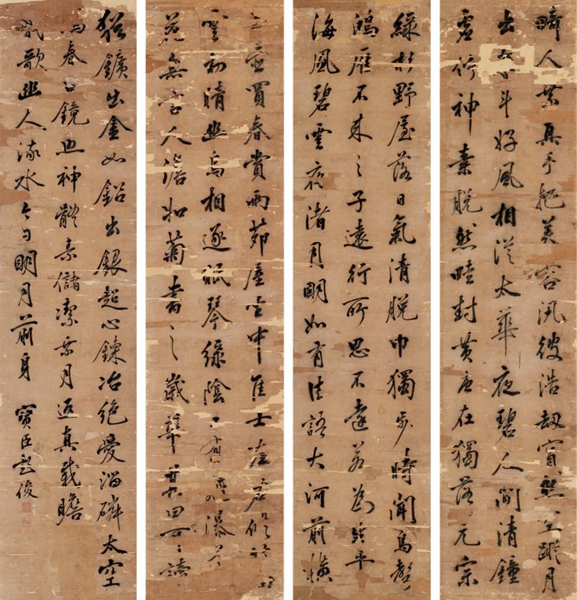 畸人乘真手把芙蓉汎彼浩劫窅然空蹤月
出東斗好風相從太華夜碧人聞清鐘
虛佇神素脫然畦封黃唐在獨落元宗
綠杉野屋落日氣清脫巾獨步時聞鳥聲
鴻雁不來之子遠行所思不遠若為生平
海風碧雲夜渚月明如有佳語大河前橫
玉壺買春賞雨茆屋坐中佳士左右脩竹白
雲初晴幽鳥相逐眠琴綠陰上有飛瀑落
花無言人澹如菊書之歲華其曰可讀
猶鑛出金如鉛出銀超心鍊冶絕愛淄磷太空
春古鏡照神體素儲潔乘月返真載瞻
歌幽人流水今日明月前身 寶臣俊